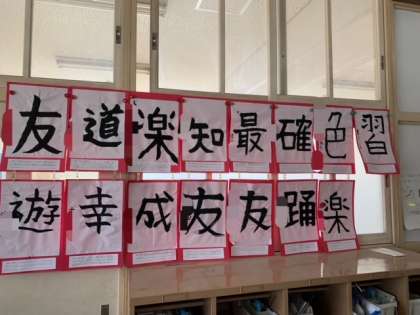 友道楽知最確色習
遊幸成友友踊楽